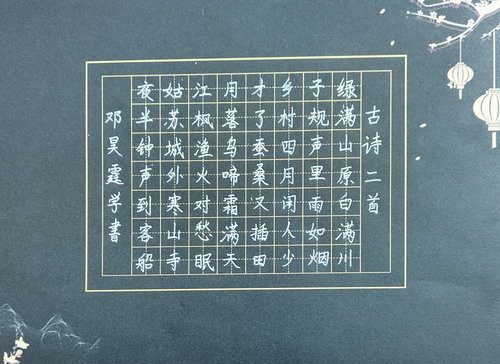 古诗二首
绿满山原白满川
子规声里雨如烟
乡村四月闲人少
才了蚕桑又插田
月落乌啼霜满天
江枫渔火对愁眠
姑苏城外寒山寺
夜半钟声到客船
邓昊霆学書